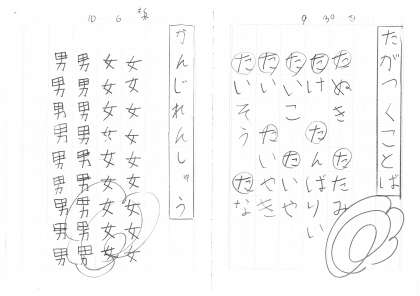 たがつくことば
たぬき たたみ
たけ たんばりん
たいこ たいや
たい たいやき
たいそう たな
かんじれんしゅう
女女女女女女女女女
女女女女女女女女女
男男男男男男男男男
男男男男男男男男男